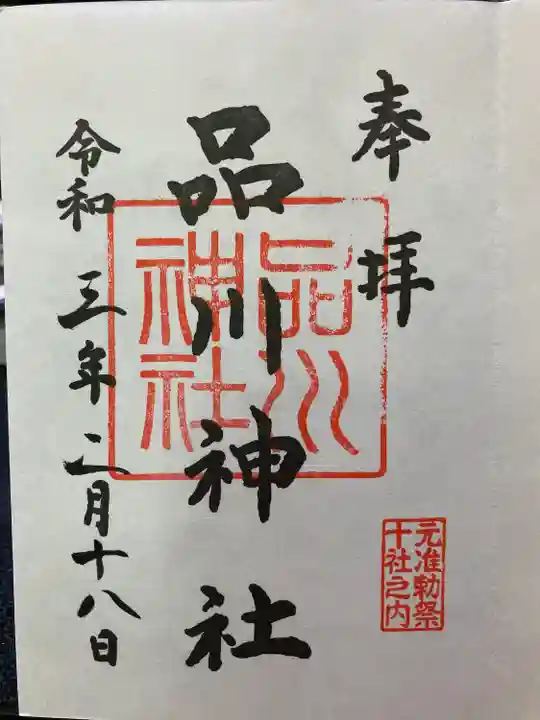 奉拝
品川神社
品川
神社
元准勅祭
十社之内
令和三年二月十八日